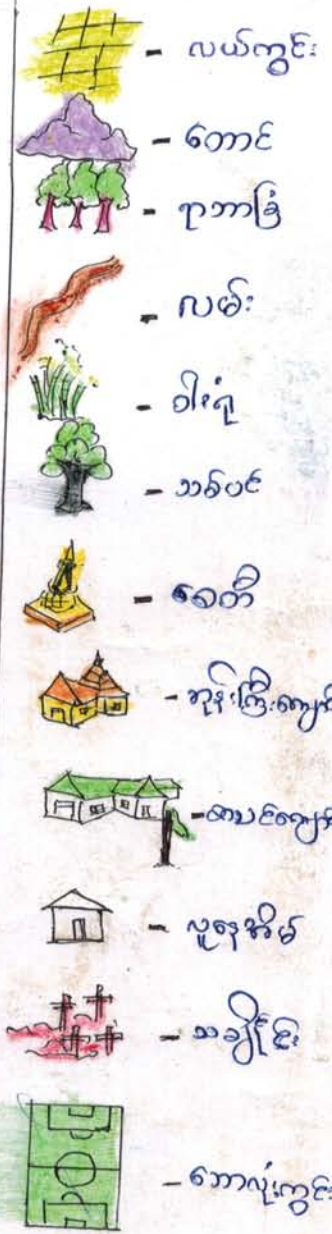 - လယ်ကွင်း
- တောင်
- ရာဘာခြံ
- လမ်း
- ဝါးရုံ
- သစ်ပင်
- စေတီ
- ဘုန်းကြီးကျောင်
- စာသင်ကျောင်
- လူနေအိမ်
- သချိုင်း
- ဘောလုံးကွင်း